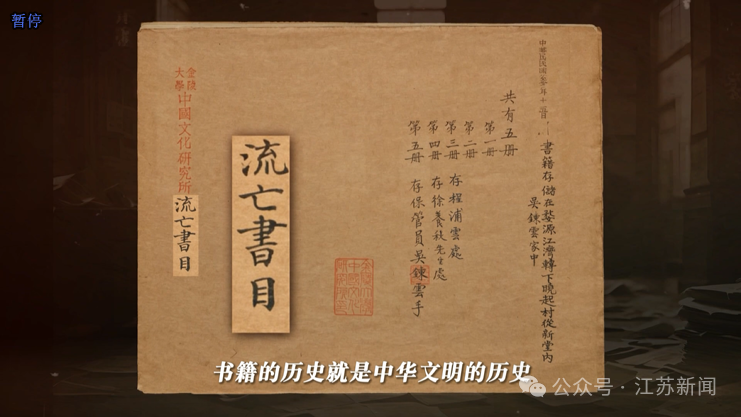 暂停
中華民國
書籍存儲在婺源江灣轉下曉起村從新堂內
吳錬雲家中
共有五册
第一册
第二册
第三册 存程浦雲處
第四册 存徐養秋先生處
第五册 存保管員吳錬雲手
流亡書目
金陵大學中國文化研究所
流亡書目
书籍的历史就是中华文明的历史
公众号·江苏新闻